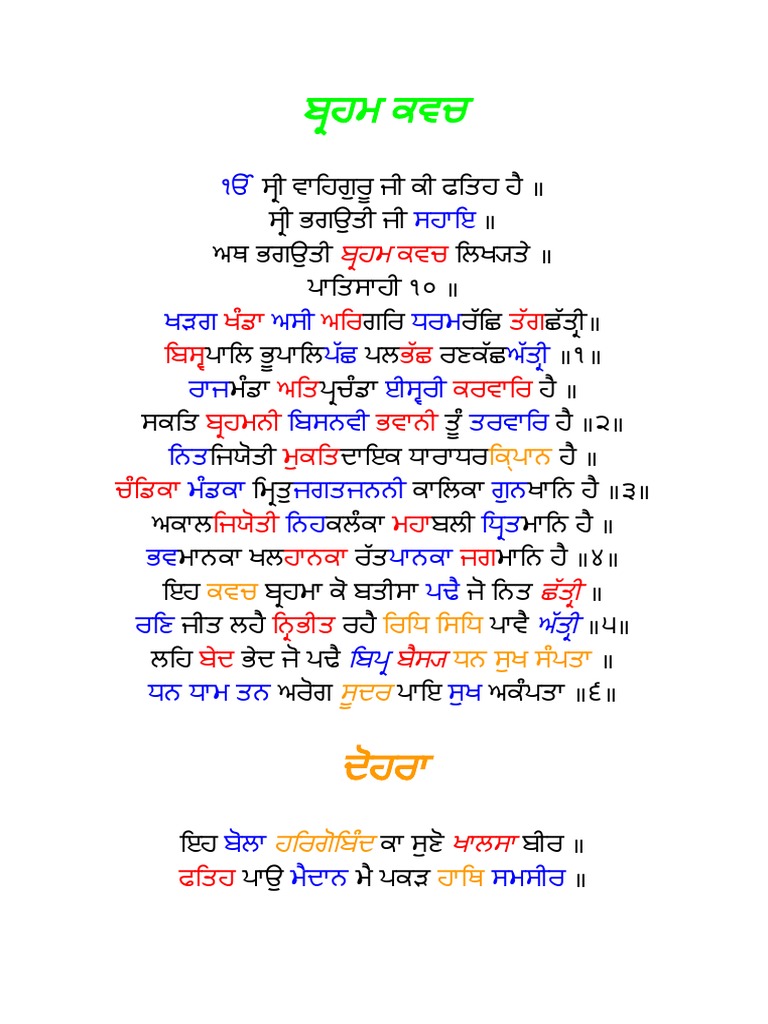 ਬ੍ਰਹਮ ਕਵਚ
ੴ ਸ੍ਰੀ ਵਾਹਿਗੁਰੂ ਜੀ ਕੀ ਫਤਿਹ ਹੈ ॥
ਸ੍ਰੀ ਭਗਉਤੀ ਜੀ ਸਹਾਇ ॥
ਅਥ ਭਗਉਤੀ ਬ੍ਰਹਮ ਕਵਚ ਲਿਖ੍ਯਤੇ ॥
ਪਾਤਿਸਾਹੀ ੧੦ ॥
ਖੜਗ ਖੰਡਾ ਅਸੀ ਅਰਿਗਰਿ ਧਰਮਰੱਛਿ ਤੱਗਛੱਤ੍ਰੀ॥
ਬਿਸ੍ਵਪਾਲਿ ਭੂਪਾਲਿਪੱਛ ਪਲਭੱਛ ਰਣਕੱਛਅੱਤ੍ਰੀ ॥੧॥
ਰਾਜਮੰਡਾ ਅਤਿਪ੍ਰਚੰਡਾ ਈਸ੍ਵਰੀ ਕਰਵਾਰਿ ਹੈ ॥
ਸਕਤਿ ਬ੍ਰਹਮਨੀ ਬਿਸਨਵੀ ਭਵਾਨੀ ਤੂੰ ਤਰਵਾਰਿ ਹੈ ॥੨॥
ਨਿਤਜਿਯੋਤੀ ਮੁਕਤਿਦਾਇਕ ਧਾਰਾਧਰਕ੍ਰਿਪਾਨ ਹੈ ॥
ਚੰਡਿਕਾ ਮੰਡਕਾ ਮ੍ਰਿਤੁਜਗਤਜਨਨੀ ਕਾਲਿਕਾ ਗੁਨਖਾਨਿ ਹੈ ॥੩॥
ਅਕਾਲਜਿਯੋਤੀ ਨਿਹਕਲੰਕਾ ਮਹਾਬਲੀ ਧ੍ਰਿਤਮਾਨਿ ਹੈ ॥
ਭਵਮਾਨਕਾ ਖਲਹਾਨਕਾ ਰੱਤਪਾਨਕਾ ਜਗਮਾਨਿ ਹੈ ॥੪॥
ਇਹ ਕਵਚ ਬ੍ਰਹਮਾ ਕੋ ਬਤੀਸਾ ਪਢੈ ਜੋ ਨਿਤ ਛੱਤ੍ਰੀ ॥
ਰਣਿ ਜੀਤ ਲਹੈ ਨ੍ਰਿਭੀਤ ਰਹੈ ਰਿਧਿ ਸਿਧਿ ਪਾਵੈ ਅੱਤ੍ਰੀ ॥੫॥
ਲਹਿ ਬੇਦ ਭੇਦ ਜੋ ਪਢੈ ਬਿਪ੍ਰ ਬੈਸ੍ਯ ਧਨ ਸੁਖ ਸੰਪਤਾ ॥
ਧਨ ਧਾਮ ਤਨ ਅਰੋਗ ਸੂਦਰ ਪਾਇ ਸੁਖ ਅਕੰਪਤਾ ॥੬॥
ਦੋਹਰਾ
ਇਹ ਬੋਲਾ ਹਰਿਗੋਬਿੰਦ ਕਾ ਸੁਣੋ ਖਾਲਸਾ ਬੀਰ ॥
ਫਤਿਹ ਪਾਉ ਮੈਦਾਨ ਮੈ ਪਕੜ ਹਾਥਿ ਸਮਸੀਰ ॥